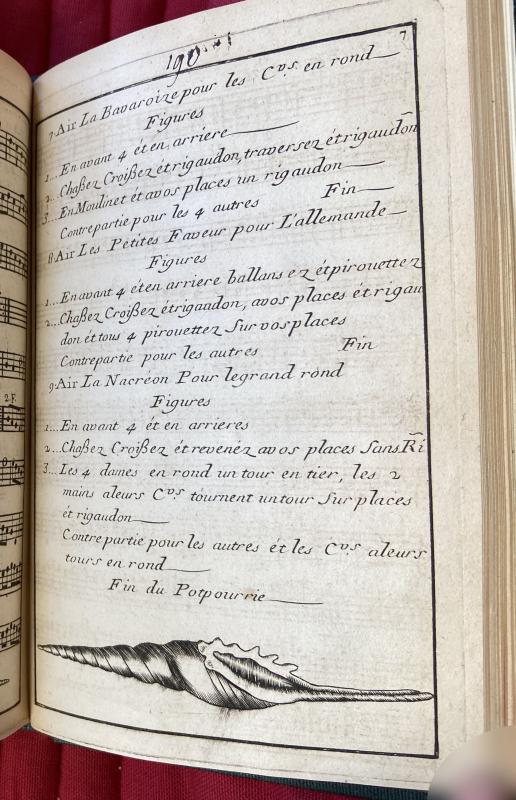 190
7
7. Air La Bavaroize pour les Cvs. en rond
Figures
1... En avant 4 ét en arriere
2... Chaßez Croißez ét rigaudon, traversez ét rigaudon
3... En Moulinet ét avos places un rigaudon
Contrepartie pour les 4 autres Fin
8. Air Les Petites Faveur pour L'allemande
Figures
1... En avant 4 ét en arriere ballans ez ét pirouettez
2... Chaßez Croißez ét rigaudon, avos places ét rigau
don ét tous 4 pirouettez Sur vos places
Contrepartie pour les autres Fin
9. Air La Nacréon Pour le grand rond
Figures
1... En avant 4 ét en arrieres
2... Chaßez Croißez ét revenéz avos places Sans Ri
3... Les 4 dames en rond un tour en tier, les 2
mains aleurs Cvs. tournent un tour Sur places
ét rigaudon
Contre partie pour les autres ét les Cvs. aleurs
tours en rond
Fin du Potpourrie
2.F.